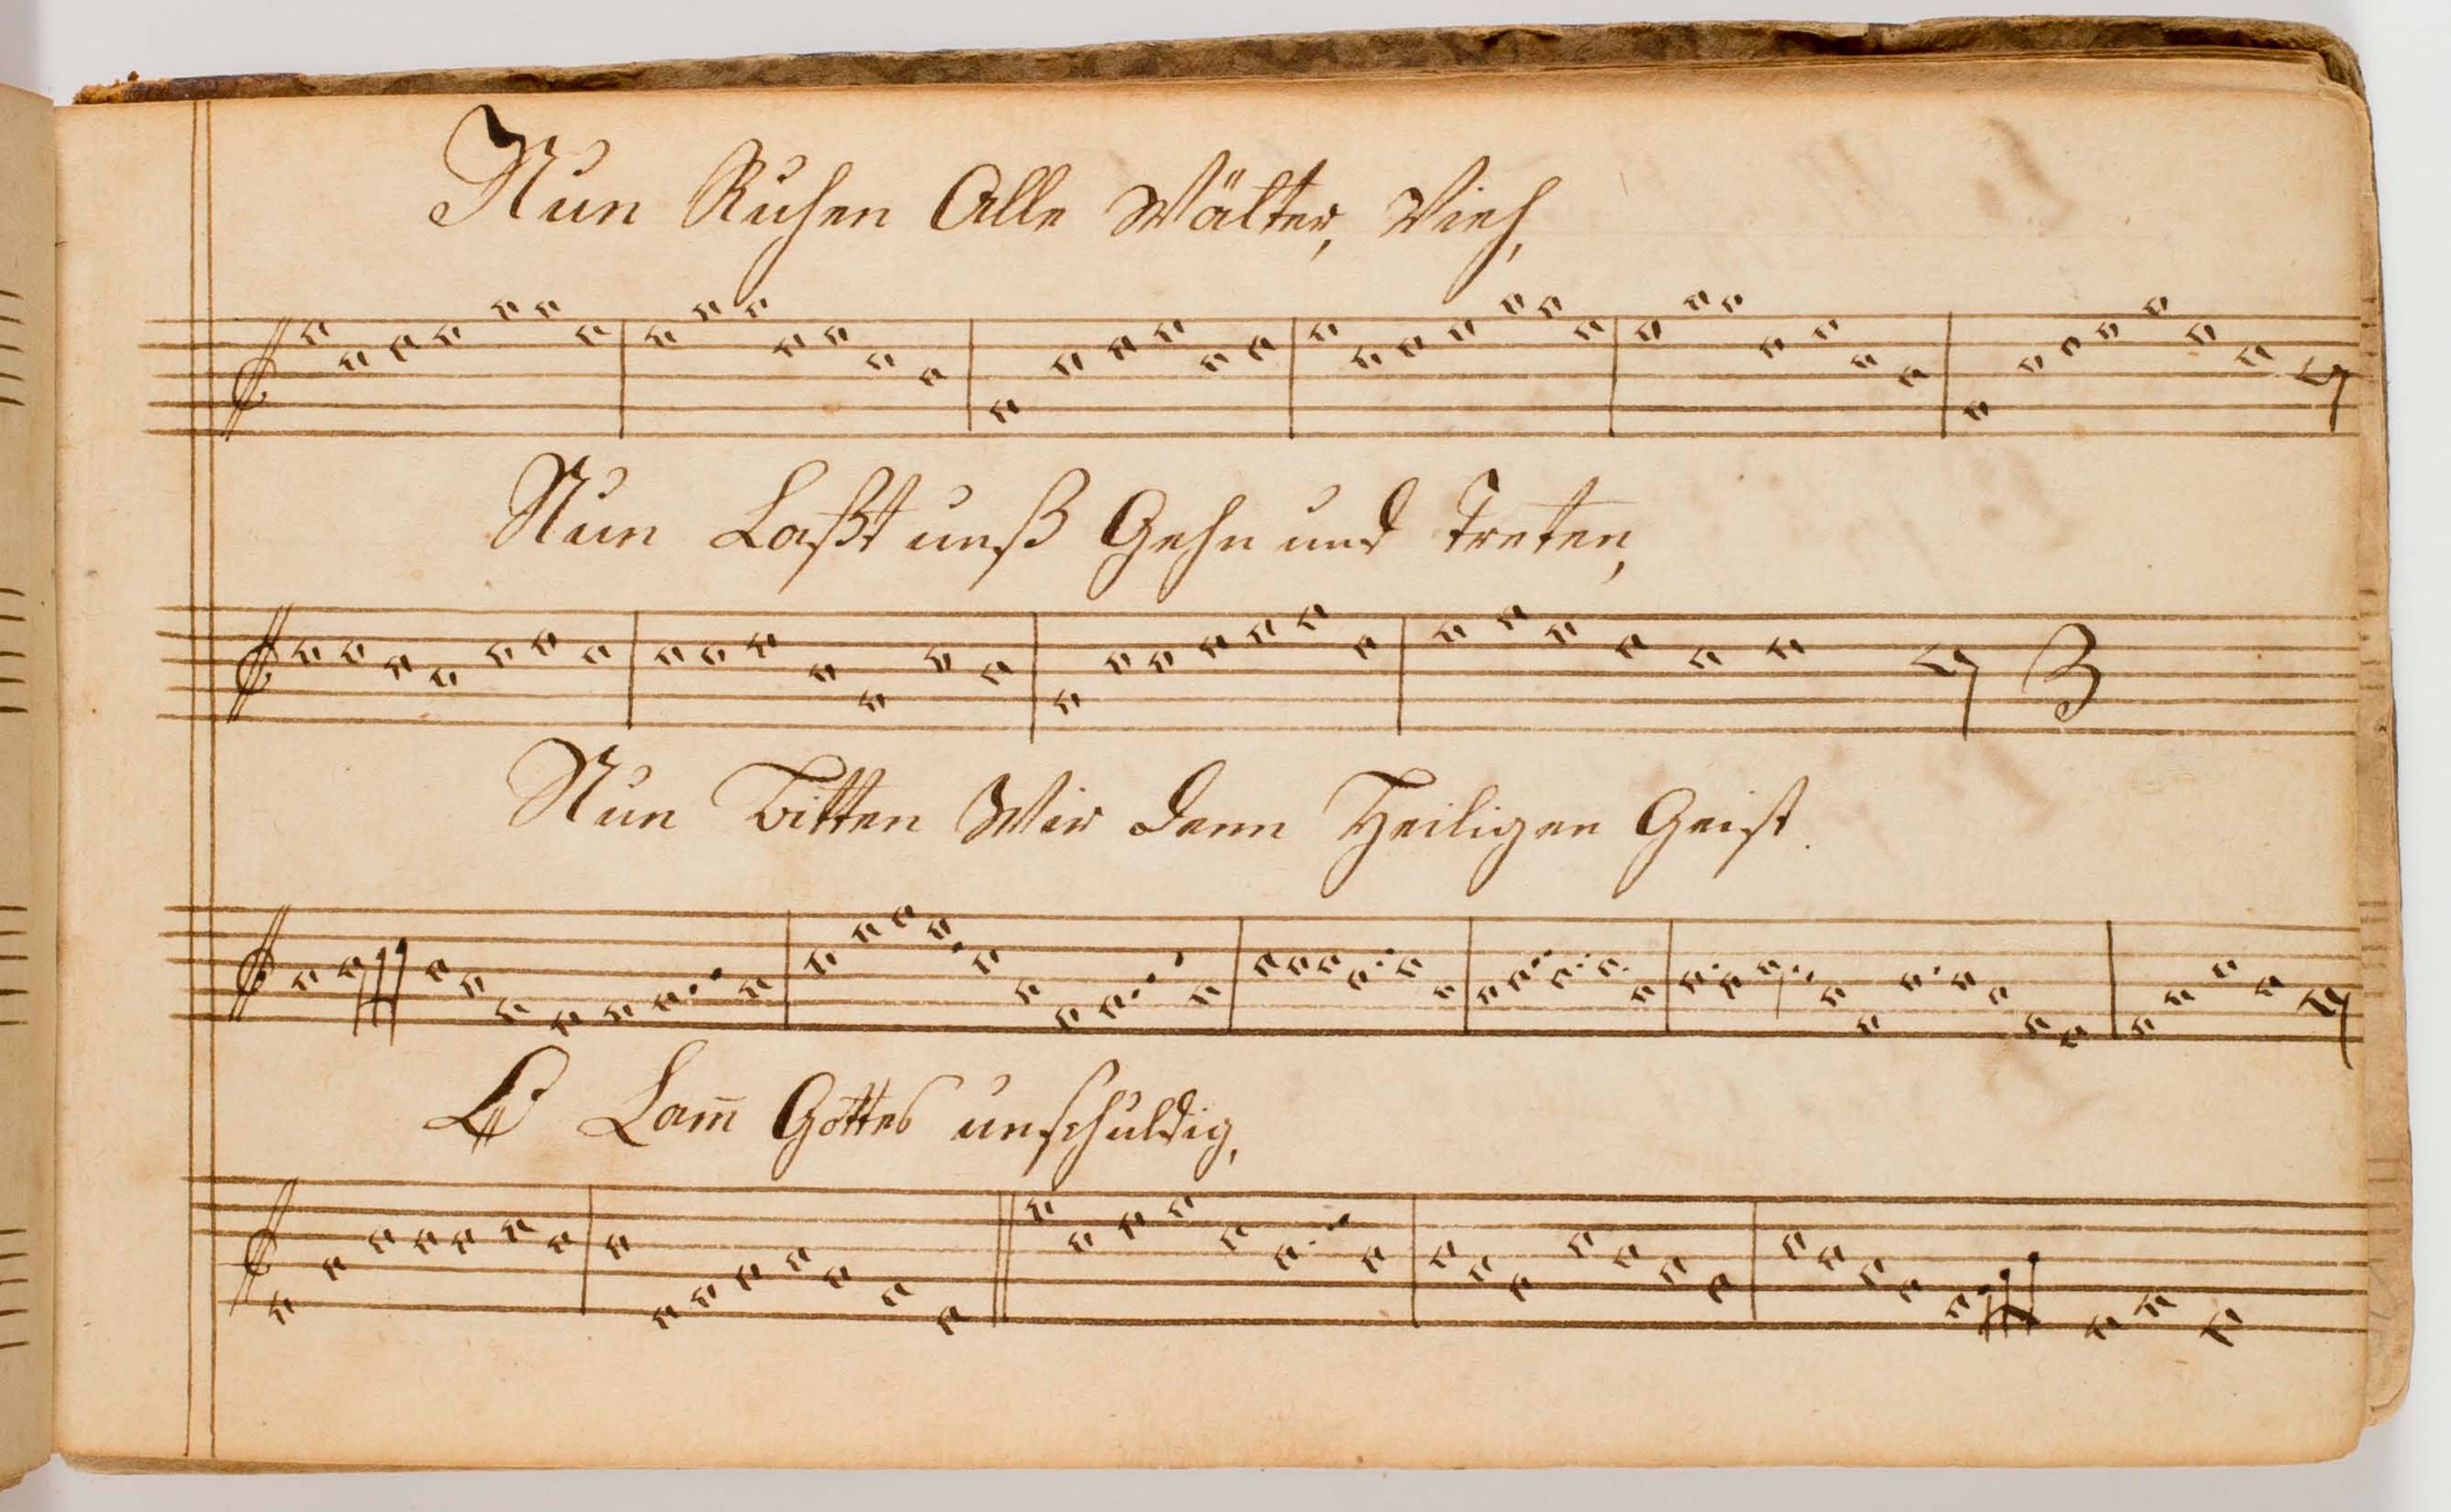 Nun Ruhen Alle Wälter, Vieh,
Nun Laßt unß Gehn und Treten,
3
Nun Bitten Wir Denn Heiligen Geist.
O Lam̄ Gottes unschuldig,